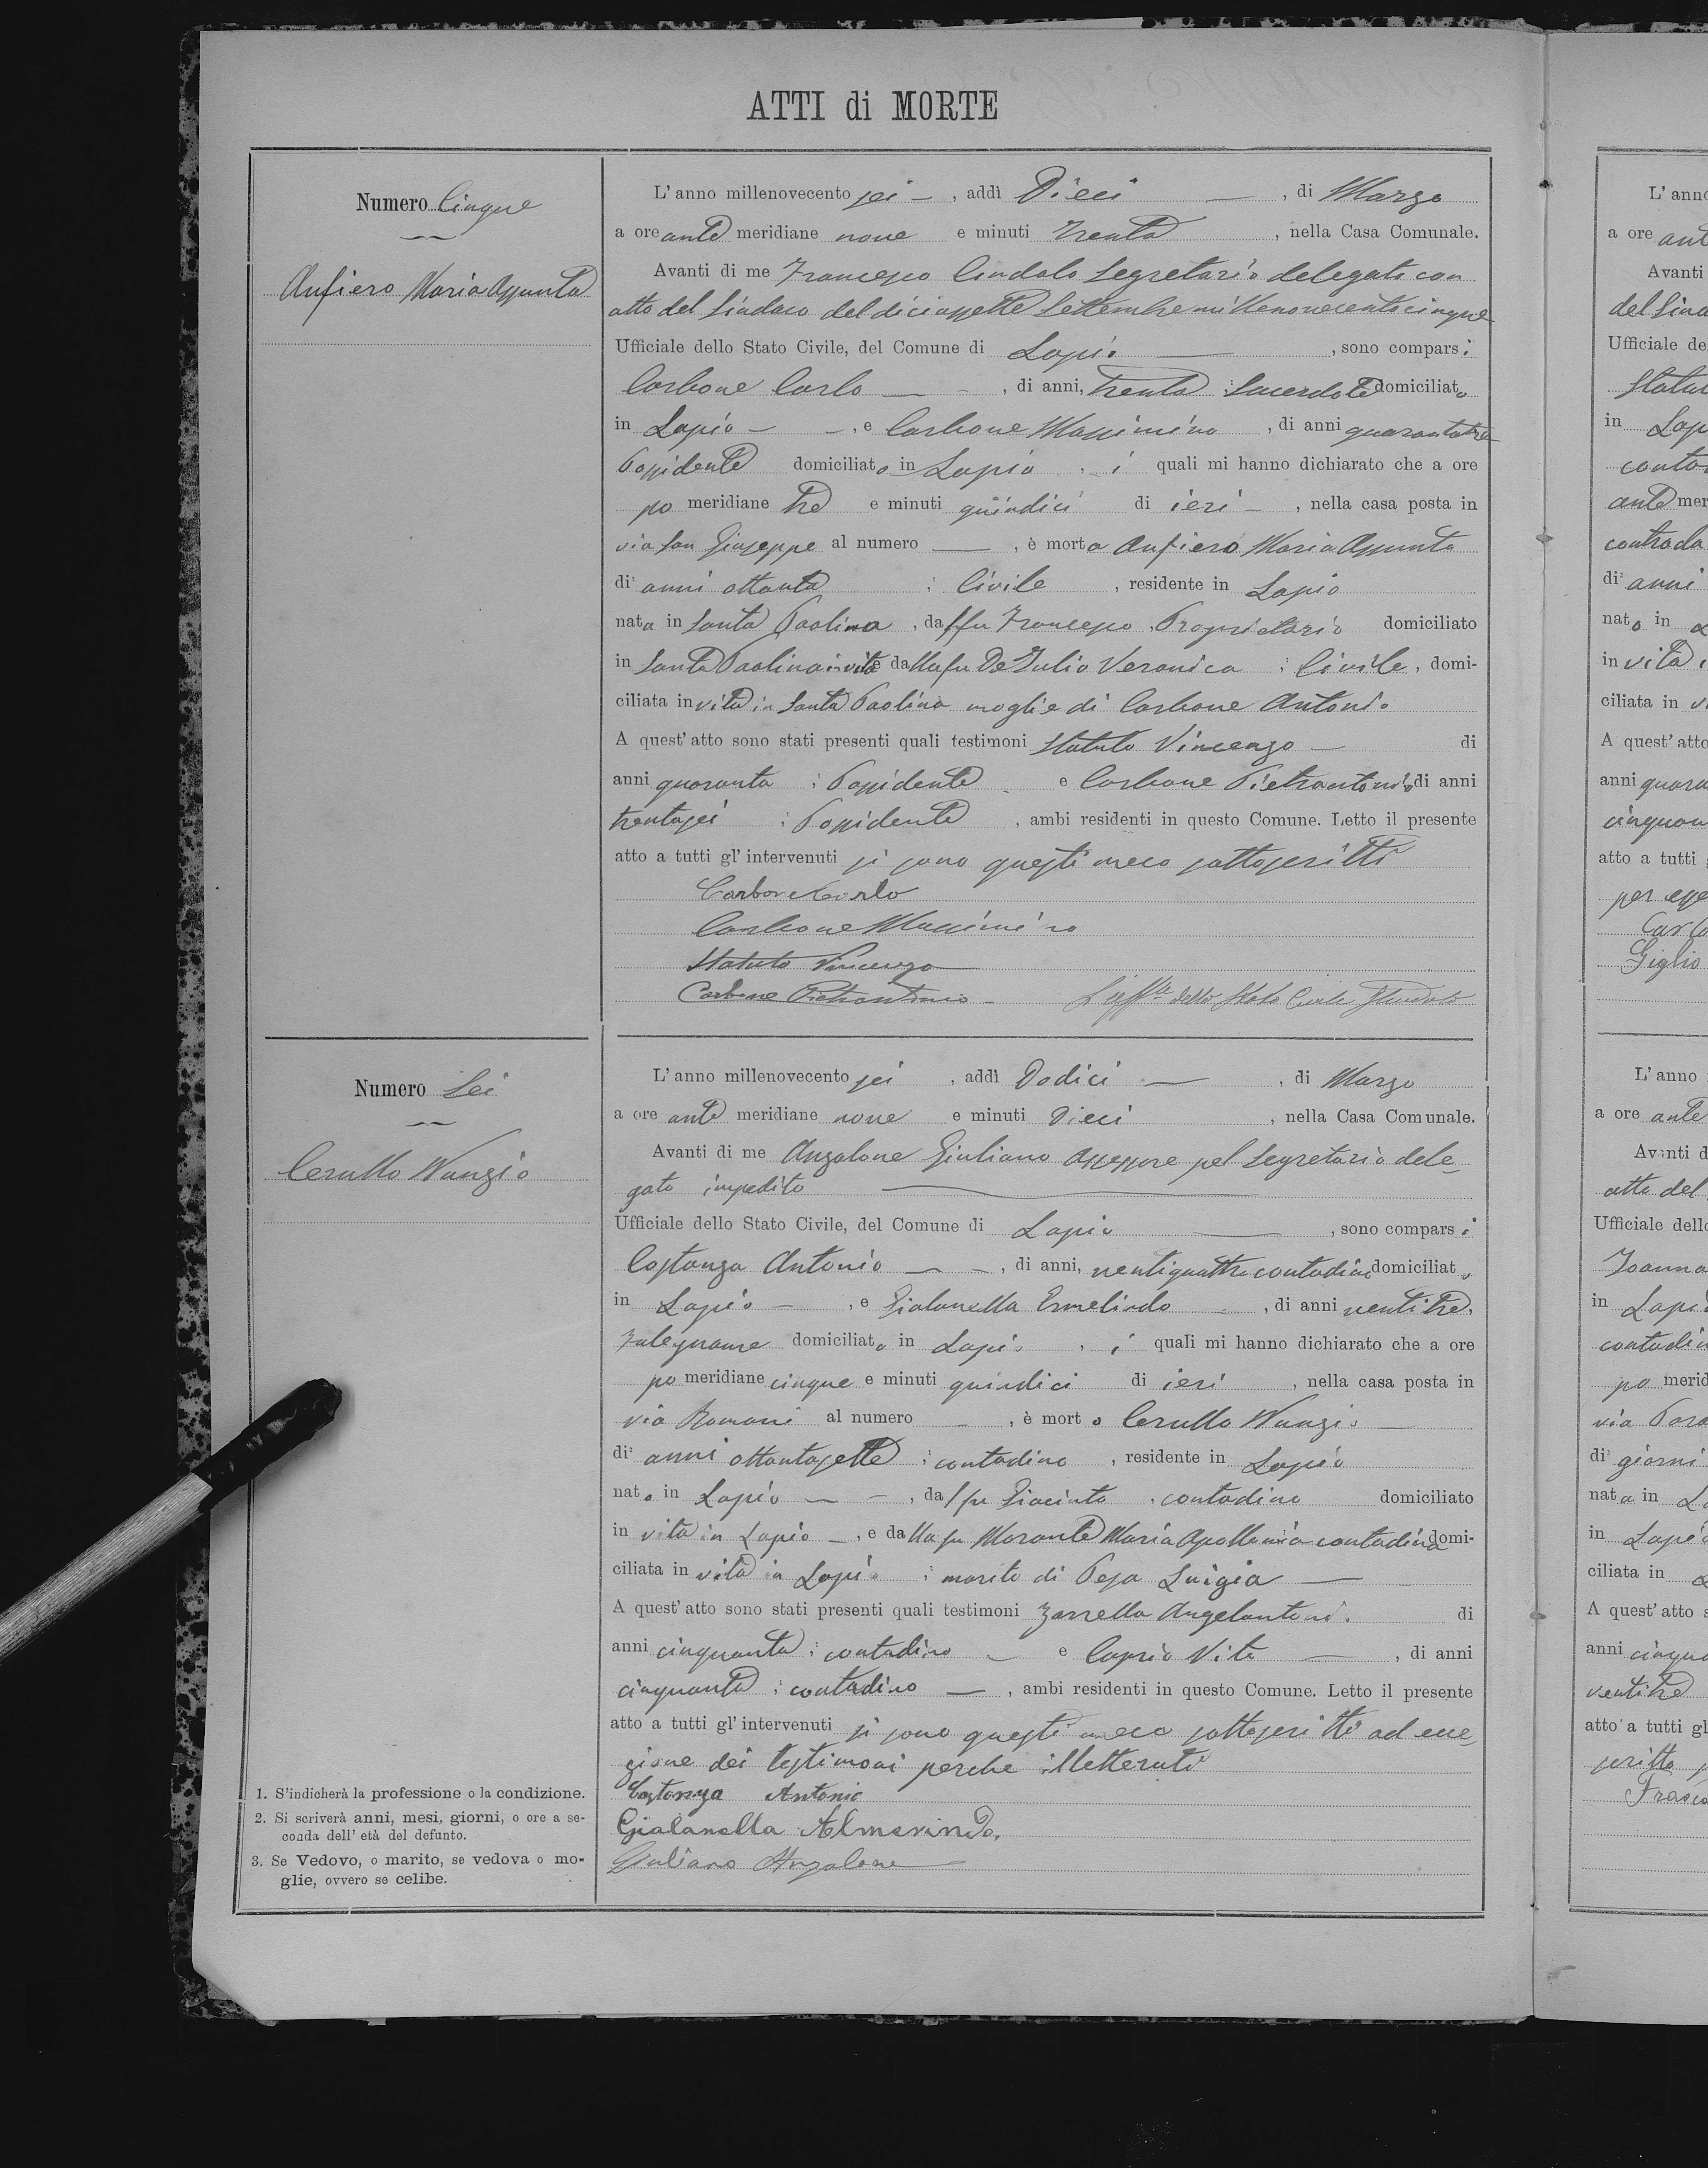 ATTI di MORTE
Numero Cinque
Anfiero Maria Assunta
L' anno millenovecento sei, addì Dieci, di Marzo
a ore ante meridiane nove e minuti Trenta, nella Casa Comunale.
Avanti di me Francesco Cindolo Segretario delegato con
atto del Sindaco del diciassette Settembre millenovecentocinque
Ufficiale dello Stato Civile, del Comune di Lapio, sono comparsi
Carbone Carlo, di anni, trenta Sacerdote domiciliato
in Lapio, e Carbone Massimino, di anni quarantatre
Possidente domiciliato in Lapio, i quali mi hanno dichiarato che a ore
po meridiane tre e minuti quindici di ieri, nella casa posta in
via San Giuseppe al numero —, è morta Anfiero Maria Assunta
di² anni ottanta Civile, residente in Lapio
nata in Santa Paolina, dal fu Francesco Proprietario domiciliato
in Santa Paolina in vita e dalla fu De Iulio Veronica Civile, domi-
ciliata in vita in Santa Paolina moglie di Carbone Antonio
A quest' atto sono stati presenti quali testimoni Statuto Vincenzo di
anni quaranta Possidente e Carbone Pietrantonio di anni
trentasei Possidente, ambi residenti in questo Comune. Letto il presente
atto a tutti gl' intervenuti si sono questi meco sottoscritti
Carbone Carlo
Carbone Massimino
Statuto Vincenzo
Carbone Pietrantonio
L'Uff.le dello Stato Civile FCindolo
Numero Sei
Cerullo Nunzio
L' anno millenovecento sei, addì Dodici, di Marzo
a ore ante meridiane nove e minuti Dieci, nella Casa Comunale.
Avanti di me Anzalone Giuliano Assessore pel Segretario dele-
gato impedito
Ufficiale dello Stato Civile, del Comune di Lapio, sono comparsi
Costanza Antonio, di anni, ventiquattro contadino domiciliato
in Lapio, e Gialanella Ermelindo, di anni ventitre,
Falegname domiciliato in Lapio, i quali mi hanno dichiarato che a ore
po meridiane cinque e minuti quindici di ieri, nella casa posta in
via Romani al numero —, è morto Cerullo Nunzio
di² anni ottantasette contadino, residente in Lapio
nato in Lapio, dal fu Giacinto, contadino domiciliato
in vita in Lapio, e dalla fu Morante Maria Apollonia contadina domi-
ciliata in vita in Lapio marito di Pesa Luigia
A quest' atto sono stati presenti quali testimoni Zarrella Angelantonio di
anni cinquanta contadino e Caprio Vito, di anni
cinquanta contadino, ambi residenti in questo Comune. Letto il presente
atto a tutti gl' intervenuti si sono questi meco sottoscritti ad ecce-
zione dei testimoni perche illetterati
Costanza Antonio
Gialanella Almerindo,
Giuliano Anzalone
1. S'indicherà la professione o la condizione.
2. Si scriverà anni, mesi, giorni, o ore a se-
conda dell' età del defunto.
3. Se Vedovo, o marito, se vedova o mo-
glie, ovvero se celibe.
L' anno
a ore ant
Avanti
del Sind
Ufficiale de
Statut
in Lap
contad
ante mer
contrada
di² anni
nato in
in vita
ciliata in
A quest' atto
anni quara
cinquan
atto a tutti
per
Carlo
Giglio
L' anno
a ore ante
Avanti d
atto del
Ufficiale dell
Joanna
in Lapi
contadin
po merid
via
di² giorni
nata in
in Lapio
ciliata in
A quest' atto s
anni cinqu
ventitre
atto a tutti gl
scritto